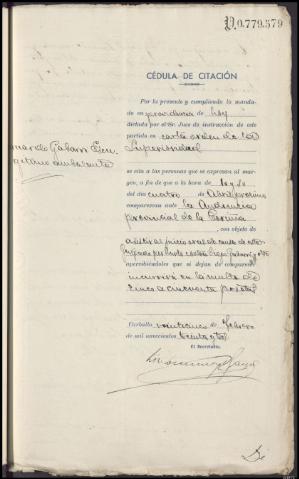 D.0.779.579
CÉDULA DE CITACIÓN
Por la presente y cumpliendo lo manda-
do en providencia de hoy
dictada por el Sr. Juez de instrucción de este
partido en carta orden de la
Superioridad
se cita a las personas que se expresan al mar-
gen, a fin de que a la hora de las diez
del día cuatro de Abril próximo
comparezcan ante la Audiencia
provincial de la Coruña
, con objeto de
asistir al juicio oral de causa
apercibiéndoles que si dejan de comparecer
incurren en la multa de
cinco a cincuenta pesetas
Carballo, veinticinco de Febrero
de mil novecientos treinta y tres
El Secretario,